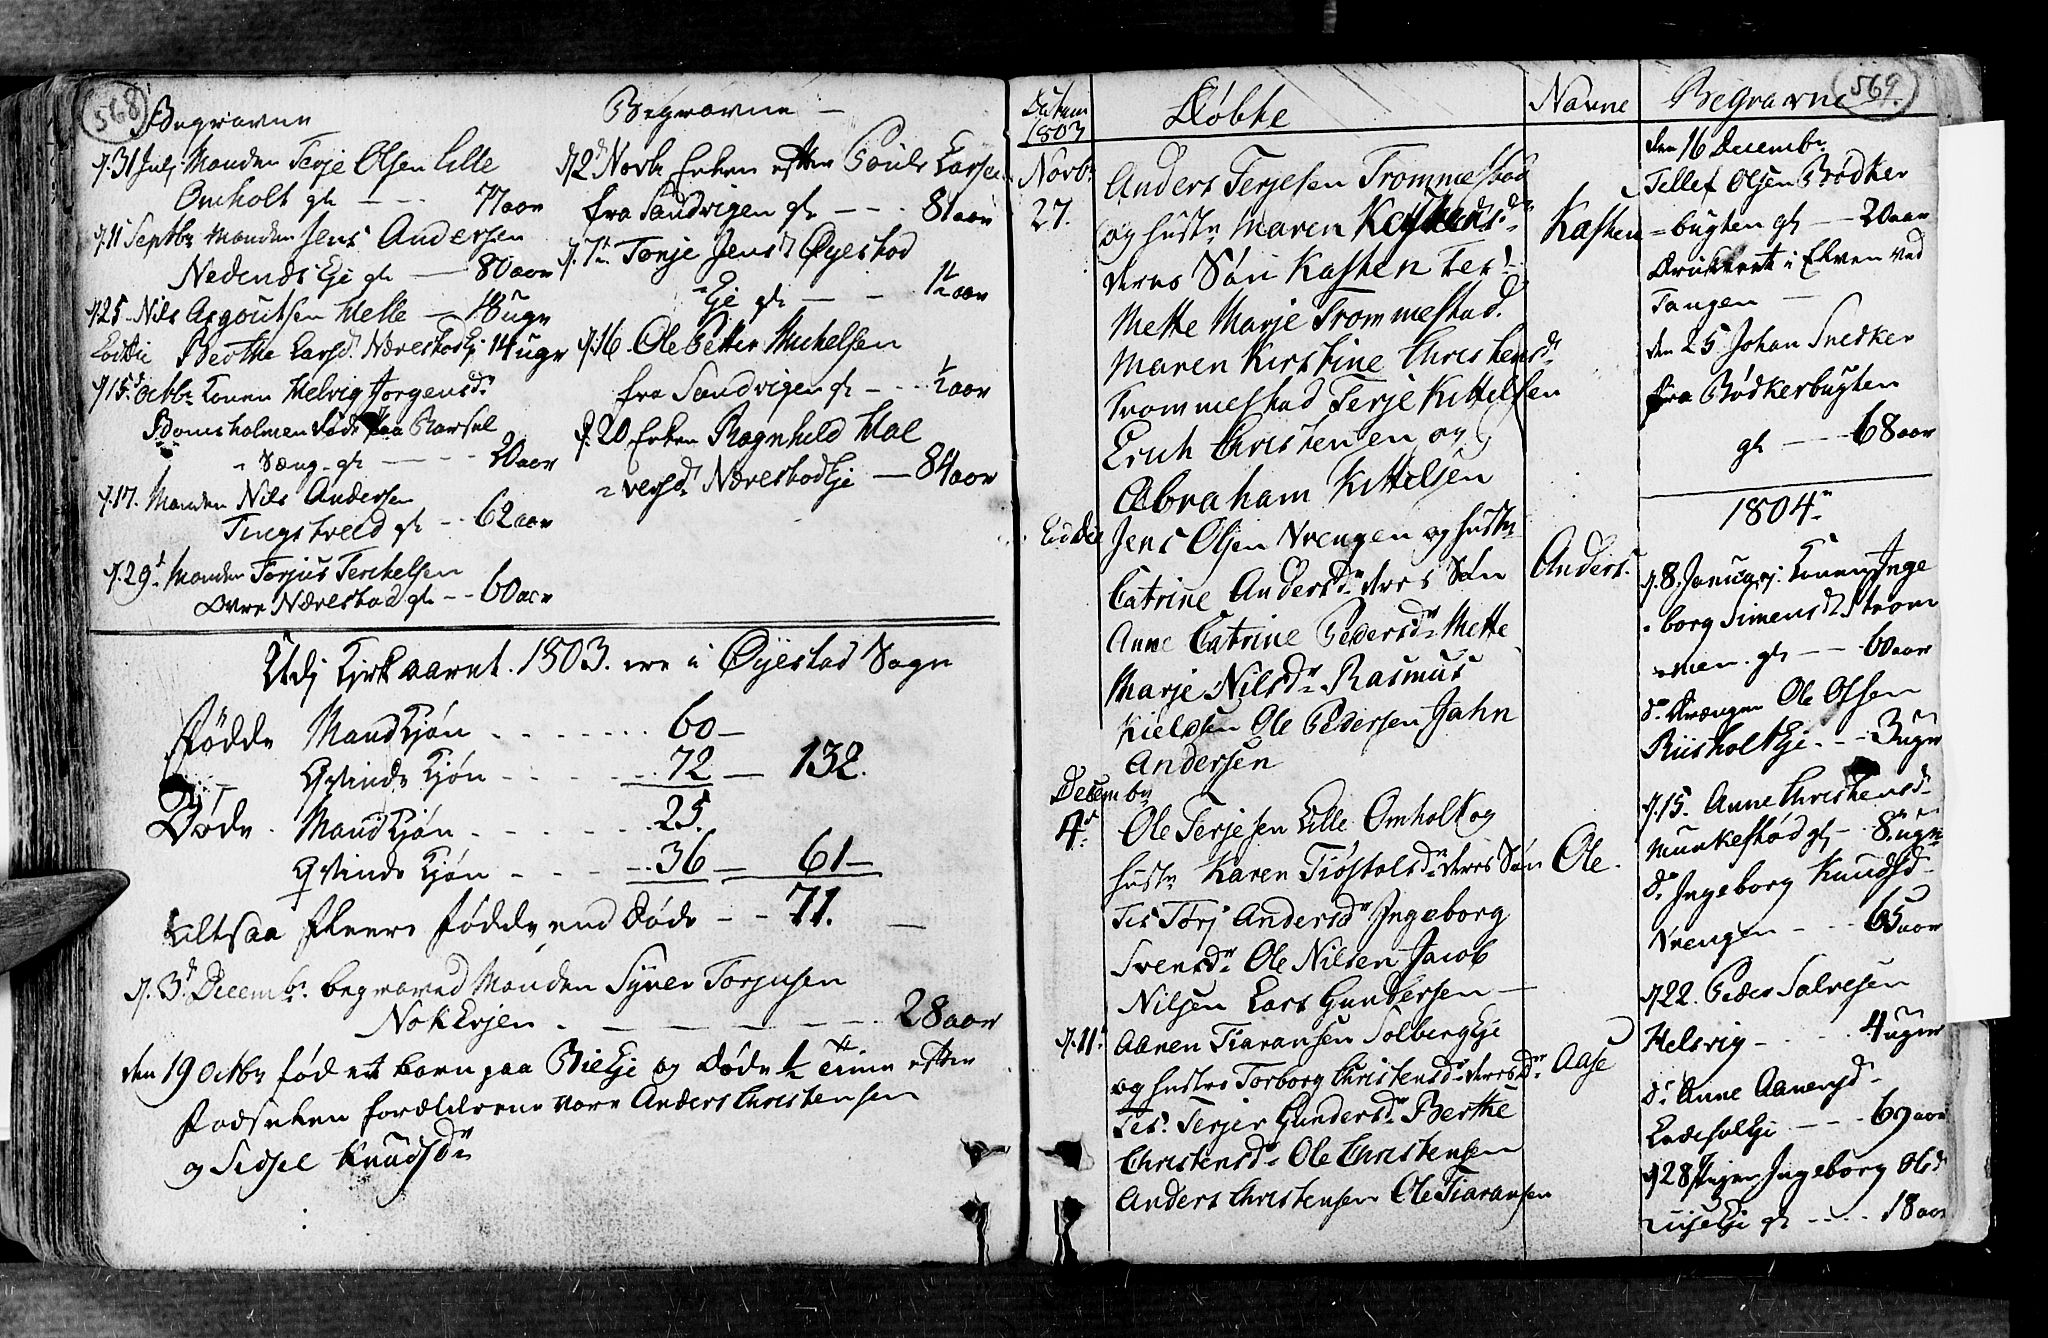 568
Begravne
d. 31 Julj Manden Terje Olsen Lille
Omholt gl. — 77 aar
d. 11 Septbr Manden Jens Andersen
Nedenæs Eje gl. — 80 aar
d. 25 Nils Asgoutsen Helle — 18 ugr
Eod Die Berthe Larsd. Nærestad Ej 14 ugr
d. 15 Octbr Konen Helvig Jorgensdr
Bomsholmen døde paa Barsel
Sæng gl. — 20 aar
d. 17. Manden Nils Andersen
Tingstveed gl. — 62 aar
d. 29 Manden Torjus Terchelsen
Øvre Nærestad gl. — 60 aar
Begravne —
d. 2d Novbr Enken efter Poul Larsen
fra Sandvigen gl. — 81 aar
d. 7 Tonje Jensd. Øyestad
Eje gl. — 1½ aar
d. 16. Ole Petter Michelsen
fra Sandvigen gl. — ½ aar
d. 20 Enken Ragnhild Hal
=versd. Nærestad Eje — 84 aar
Udj Kirkeaaret 1803. ere i Øyestad Sogn
Fødde Mandkjøn — 60 —
Qvindekjøn — 72 — 132.
Døde. Mandkjøn — 25.
Qvindekjøn — 36 — 61 —
Altsaa fleere fødde end døde — 71. —
d. 3d Decembr. begraved Manden Syver Torjusen
— 28 aar
den 19 Octbr fød et barn paa Bie Eje og døde ½ time efter
Fødselen forældrene vare Anders Christensen
og Sidsel Knudsdr
569.
Datum
1803
Døbte
Navne
Begravne
Novbr
27.
Anders Terjesen Trommestad
og hustr Maren Kastensdr
deres Søn Kasten Tes:
Mette Marje Trommestad.
Maren Kirstine Christensdr
Trommestad Terje Kittelsen
Erich Christensen og
Abraham Kittelsen
Kasten
Eod Die Jens Olsen Vrengen og hustr
Catrine Andersdr deres Søn
Anne Catrine Pedersdr Mette
Marje Nilsdr Rasmus
Kieldsen Ole Pedersen Jahn
Andersen
Anders.
Decembr
4d
Ole Terjesen Lille Omholt og
hustr Karen Tiøstolsdr deres Søn
Tes Torj Andersdr Ingeborg
Svensdr Ole Nilsen Jacob
Nilsen Lars Gundersen —
Ole.
d. 11
Aanen Tiaransen Solberg Eje
og hustroe Torborg Christensdr deres dr
Tes. Terjer Gundersdr Berthe
Christensdr Ole Christensen
Anders Christensen Ole Tiaransen
Aase
den 16 Decembr
Tellef Olsen Bødker
=bugten gl. — 20 aar
Druknet i Elven ved
Tangen —
den 25 Johan Snedker
fra Bødkerbugten
gl. — 68 aar
1804
d. 8. Januarj. Konen Inge
=borg Simensdr Strøm
=men gl. — 60 aar
do Drængen Ole Olsen
Riisholt Eje — 3 ugr
d. 15. Anne Christensdr
Munkestød gl. — 8 ugr
do Ingeborg Knudsdr
Vrengen — 65 aar
d. 22. Peder Salvesen
Helsvig — 4 ugr
do Anne Aanensdr
— 67 aar
d. 28 Pigen Ingeborg Olsdr
gl. — 18 aar